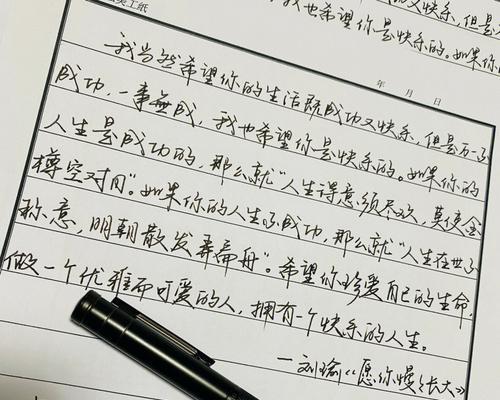 员工纸
我也希望你是快乐的。如果你
年 月 日
我当然希望你的生活既成功又快乐，但是万一不
成功，一事无成，我也希望你是快乐的。如果你的
人生是成功的，那么就“人生得意须尽欢，莫使金
樽空对月”。如果你的人生不成功，那么就“人生在世不
称意，明朝散发弄扁舟”。希望你珍爱自己的生命，
做一个优雅而可爱的人，拥有一个快乐的人生。
—刘瑜《愿你慢慢长大》